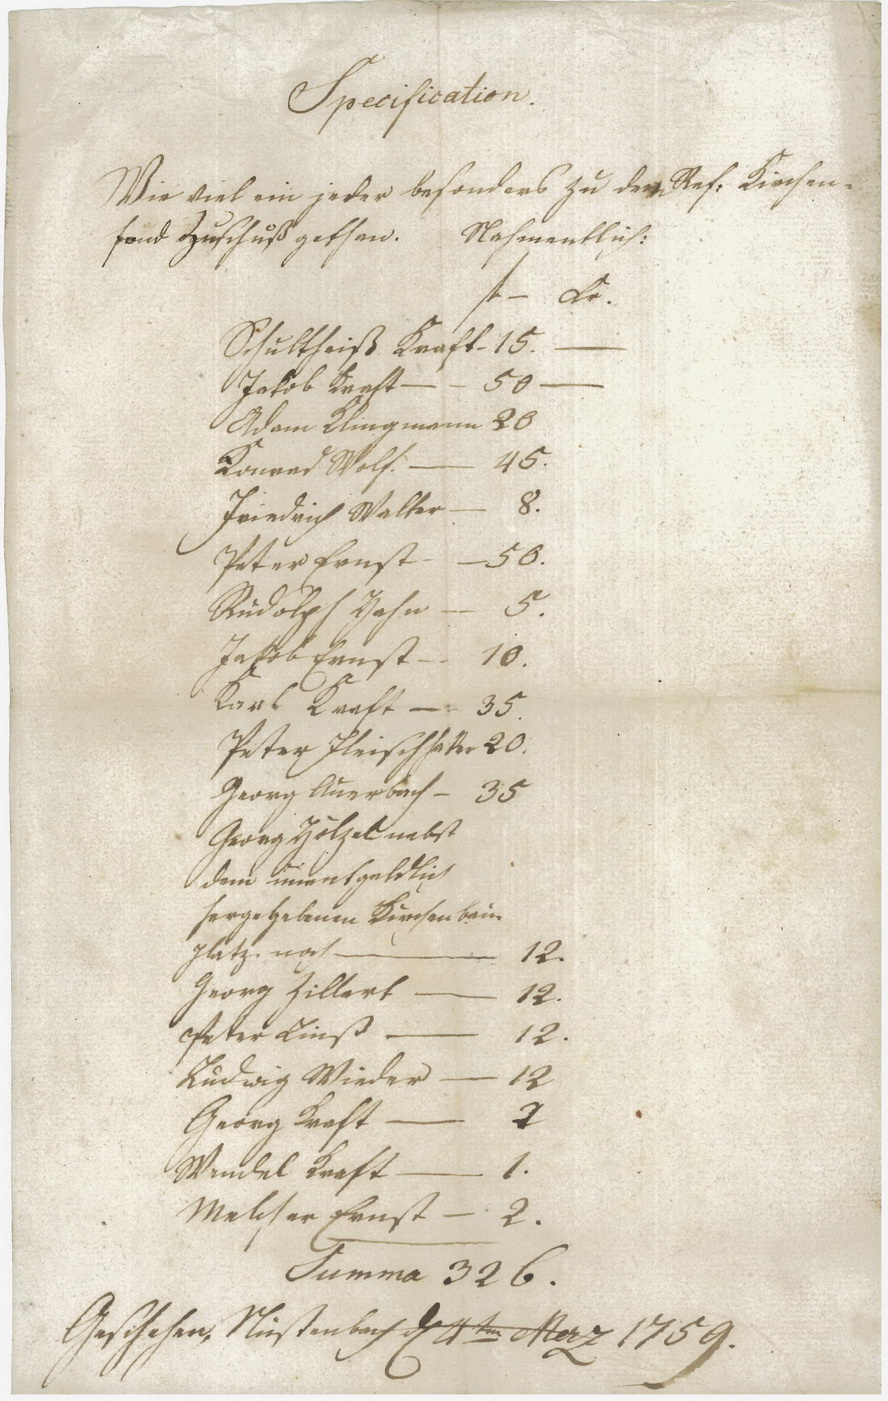 Specification.
Wie viel ein jeder besonders zu dem Ref: Kirchen-
fond Zuschuß gethan. Nahmentlich:
f — Kr.
Schultheiß Kraft - 15. —
Jakob Kraft — - 50 —
Adam Klingmann 20
Konrad Wolf. — 45.
Friedrich Walter — 8.
Peter Ernst - — 50.
Rudolph Jahn — 5.
Jakob Ernst — 10.
Karl Kraft — 35.
Peter Fleischhaker 20.
Georg Auerbach — 35
Georg Hölzel nebst
dem unentgeldlich
hergegebenen Kirchen bau
platz noch — 12.
Georg Zillert — 12.
Peter Linß — 12.
Ludwig Wieder — 12
Georg Kraft —
Wendel Kraft — 1.
Melcher Ernst — 2.
Summa 326.
Geschehen, Nüstenbach d 4ten Merz 1759.